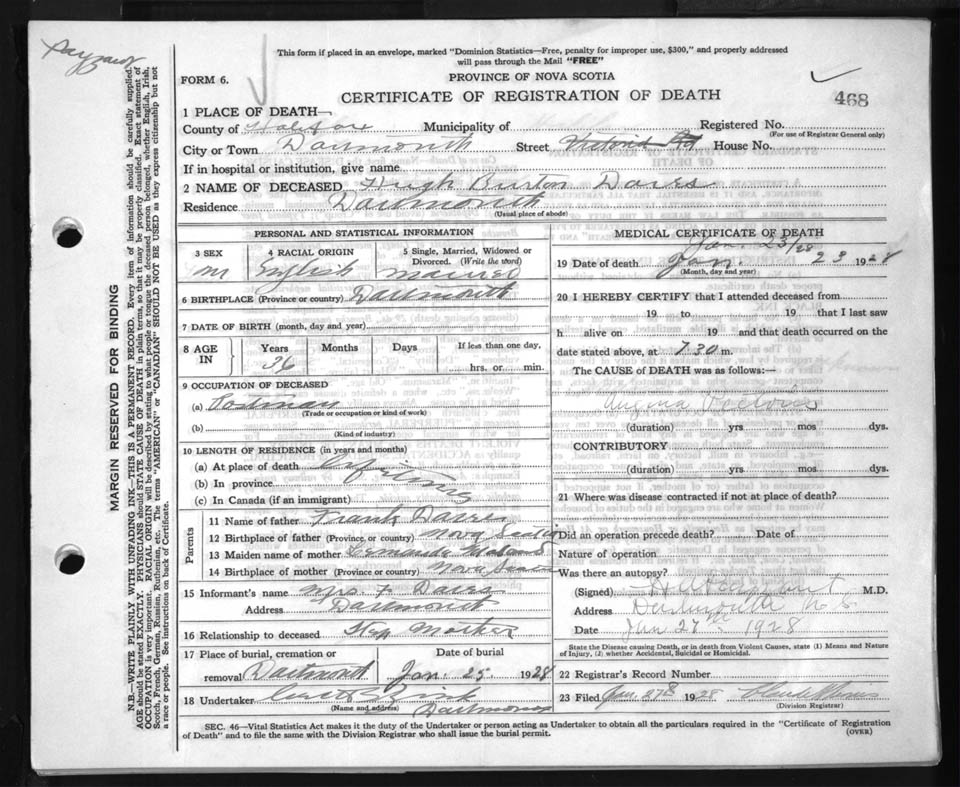 This form if placed in an envelope, marked "Dominion Statistics—Free, penalty for improper use, $300," and properly addressed
will pass through the Mail "FREE"
FORM 6.
PROVINCE OF NOVA SCOTIA
CERTIFICATE OF REGISTRATION OF DEATH
468
1 PLACE OF DEATH
County of Halifax Municipality of Registered No.
(For use of Registrar General only)
City or Town Dartmouth Street Victoria Rd House No.
If in hospital or institution, give name
2 NAME OF DECEASED Hugh Burton Davis
Residence Dartmouth
(Usual place of abode)
PERSONAL AND STATISTICAL INFORMATION
3 SEX
m
4 RACIAL ORIGIN
English
5 Single, Married, Widowed or
Divorced. (Write the word)
married
6 BIRTHPLACE (Province or country) Dartmouth
7 DATE OF BIRTH (month, day and year)
8 AGE
IN
Years
36
Months
Days
If less than one day,
hrs. or min.
9 OCCUPATION OF DECEASED
(a) Postman
(Trade or occupation or kind of work)
(b)
(Kind of industry)
10 LENGTH OF RESIDENCE (in years and months)
(a) At place of death
(b) In province
(c) In Canada (if an immigrant)
Parents
11 Name of father Frank Davis
12 Birthplace of father (Province or country) Nova Scotia
13 Maiden name of mother
14 Birthplace of mother (Province or country) Nova Scotia
15 Informant's name Mrs F Davis
Address Dartmouth
16 Relationship to deceased Step Mother
17 Place of burial, cremation or
removal Dartmouth
Date of burial
Jan. 25 1928
18 Undertaker
(Name and address) Dartmouth
MEDICAL CERTIFICATE OF DEATH
Jan. 23/28
19 Date of death Jan. 23 1928
(Month, day and year)
20 I HEREBY CERTIFY that I attended deceased from
19 to 19 that I last saw
h alive on 19 and that death occurred on the
date stated above, at 7.30 m.
The CAUSE of DEATH was as follows:—
Angina Pectoris
(duration) yrs mos dys.
CONTRIBUTORY
(duration) yrs mos dys.
21 Where was disease contracted if not at place of death?
Did an operation precede death? Date of
Nature of operation
Was there an autopsy?
(Signed) M.D.
Address Dartmouth N.S.
Date Jan 27th 1928
State the Disease causing Death, or in death from Violent Causes, state (1) Means and Nature
of Injury, (2) whether Accidental, Suicidal or Homicidal.
22 Registrar's Record Number
23 Filed Jan. 27th 1928
(Division Registrar)
SEC. 46—Vital Statistics Act makes it the duty of the Undertaker or person acting as Undertaker to obtain all the particulars required in the "Certificate of Registration
of Death" and to file the same with the Division Registrar who shall issue the burial permit.
(OVER)
MARGIN RESERVED FOR BINDING
N.B.—WRITE PLAINLY WITH UNFADING INK—THIS IS A PERMANENT RECORD. Every item of information should be carefully supplied.
AGE should be stated EXACTLY. PHYSICIANS should STATE CAUSE OF DEATH in plain terms, so that it may be properly classified. Exact statement of
OCCUPATION is very important. RACIAL ORIGIN will be described by stating to what people or tongue the deceased person belonged, whether English, Irish,
Scotch, French, German, Russian, Ruthenian, etc. The terms "AMERICAN" or "CANADIAN" SHOULD NOT BE USED as they express citizenship but not
a race or people. See instructions on back of Certificate.